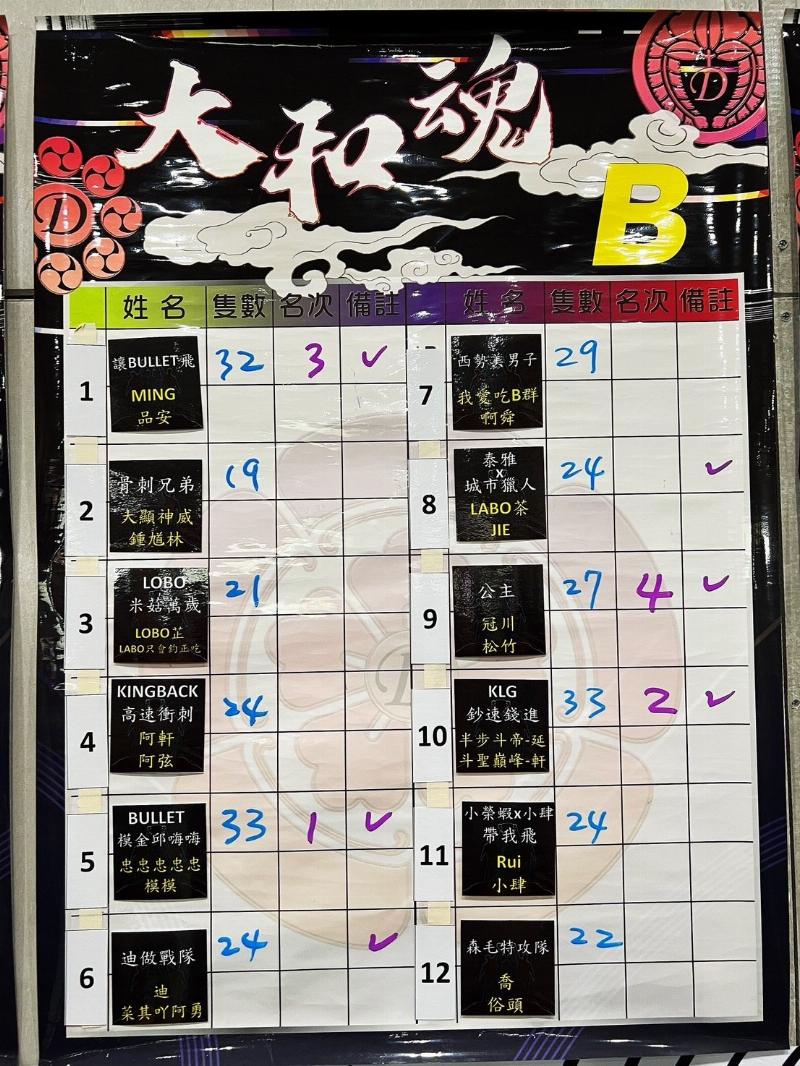 大和魂
D
D
B
姓名 隻數 名次 備註 姓名 隻數 名次 備註
1
讓BULLET飛
MING
品安
32 3 ✓
2
骨刺兄弟
大顯神威
鍾馗林
19
3
LOBO
米菇萬歲
LOBO芷
LABO只會釣正吃
21
4
KINGBACK
高速衝刺
阿軒
阿弦
24
5
BULLET
模金邱嗨嗨
忠忠忠忠忠
模模
33 1 ✓
6
迪傲戰隊
迪
菜其吖阿勇
24 ✓
7
西勢美男子
我愛吃B群
啊舜
29
8
泰雅
x
城市獵人
LABO茶
JIE
24 ✓
9
公主
冠川
松竹
27 4 ✓
10
KLG
鈔速錢進
半步斗帝-延
斗聖巔峰-軒
33 2 ✓
11
小榮蝦x小肆
帶我飛
Rui
小肆
24
12
森毛特攻隊
喬
俗頭
22